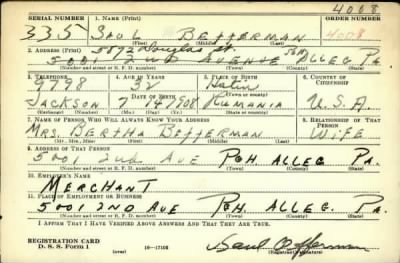 4008
SERIAL NUMBER 1. Name (Print) ORDER NUMBER
335 SAUL BEFFERMAN 4008
(First) (Middle) (Last)
2. Address (Print)
5872 Douglas St.
5001 2ND AVENUE PGH ALLEG PA.
(Number and street or R. F. D. number) (Town) (County) (State)
3. TELEPHONE 4. AGE IN YEARS 5. PLACE OF BIRTH 6. COUNTRY OF CITIZENSHIP
9798 32
(Town or county)
JACKSON 7. DATE OF BIRTH
7 14 1908 RUMANIA U.S.A.
(Exchange) (Number) (Mo.) (Day) (Yr.) (State or country)
7. NAME OF PERSON WHO WILL ALWAYS KNOW YOUR ADDRESS 8. RELATIONSHIP OF THAT PERSON
MRS. BERTHA BEFFERMAN WIFE
(Mr., Mrs., Miss) (First) (Middle) (Last)
9. ADDRESS OF THAT PERSON
5001 2nd AVE PGH. ALLEG PA.
(Number and street or R. F. D. number) (Town) (County) (State)
10. EMPLOYER'S NAME
MERCHANT
11. PLACE OF EMPLOYMENT OR BUSINESS
5001 2ND AVE PGH. ALLEG. PA.
(Number and street or R. F. D. number) (Town) (County) (State)
I AFFIRM THAT I HAVE VERIFIED ABOVE ANSWERS AND THAT THEY ARE TRUE.
REGISTRATION CARD
D. S. S. Form 1 (over) 16-17105 Saul Befferman
(Registrant's signature)